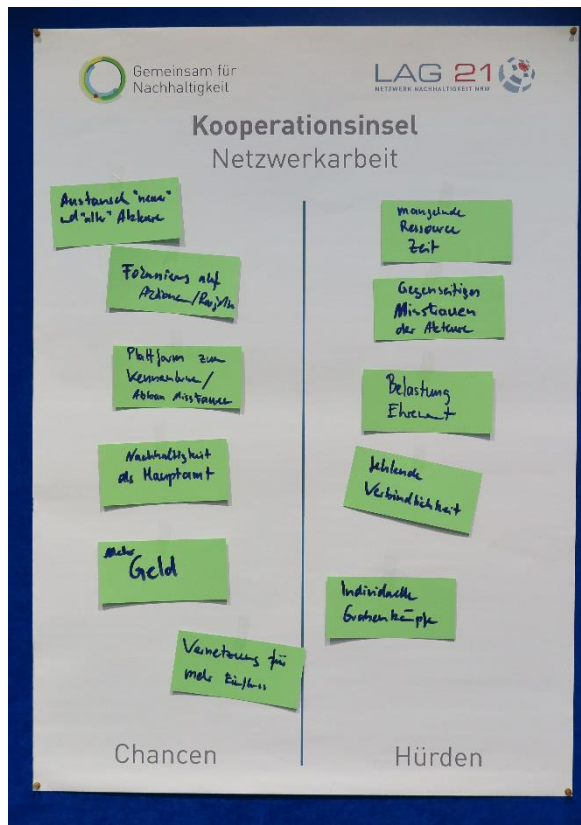 Gemeinsam für
Nachhaltigkeit
LAG 21
NETZWERK NACHHALTIGKEIT NRW
Kooperationsinsel
Netzwerkarbeit
Austausch "neuer"
und "alter" Akteure
Fokussierung auf
Aktionen/Projekte
Plattform zum
Kennenlernen/
Abbau Misstrauen
Nachhaltigkeit
als Hauptamt
Mehr
Geld
Vernetzung für
mehr Einfluss
Chancen
mangelnde
Ressource
Zeit
Gegenseitiges
Misstrauen
der Akteure
Belastung
Ehrenamt
fehlende
Verbindlichkeit
Individuelle
Grabenkämpfe
Hürden